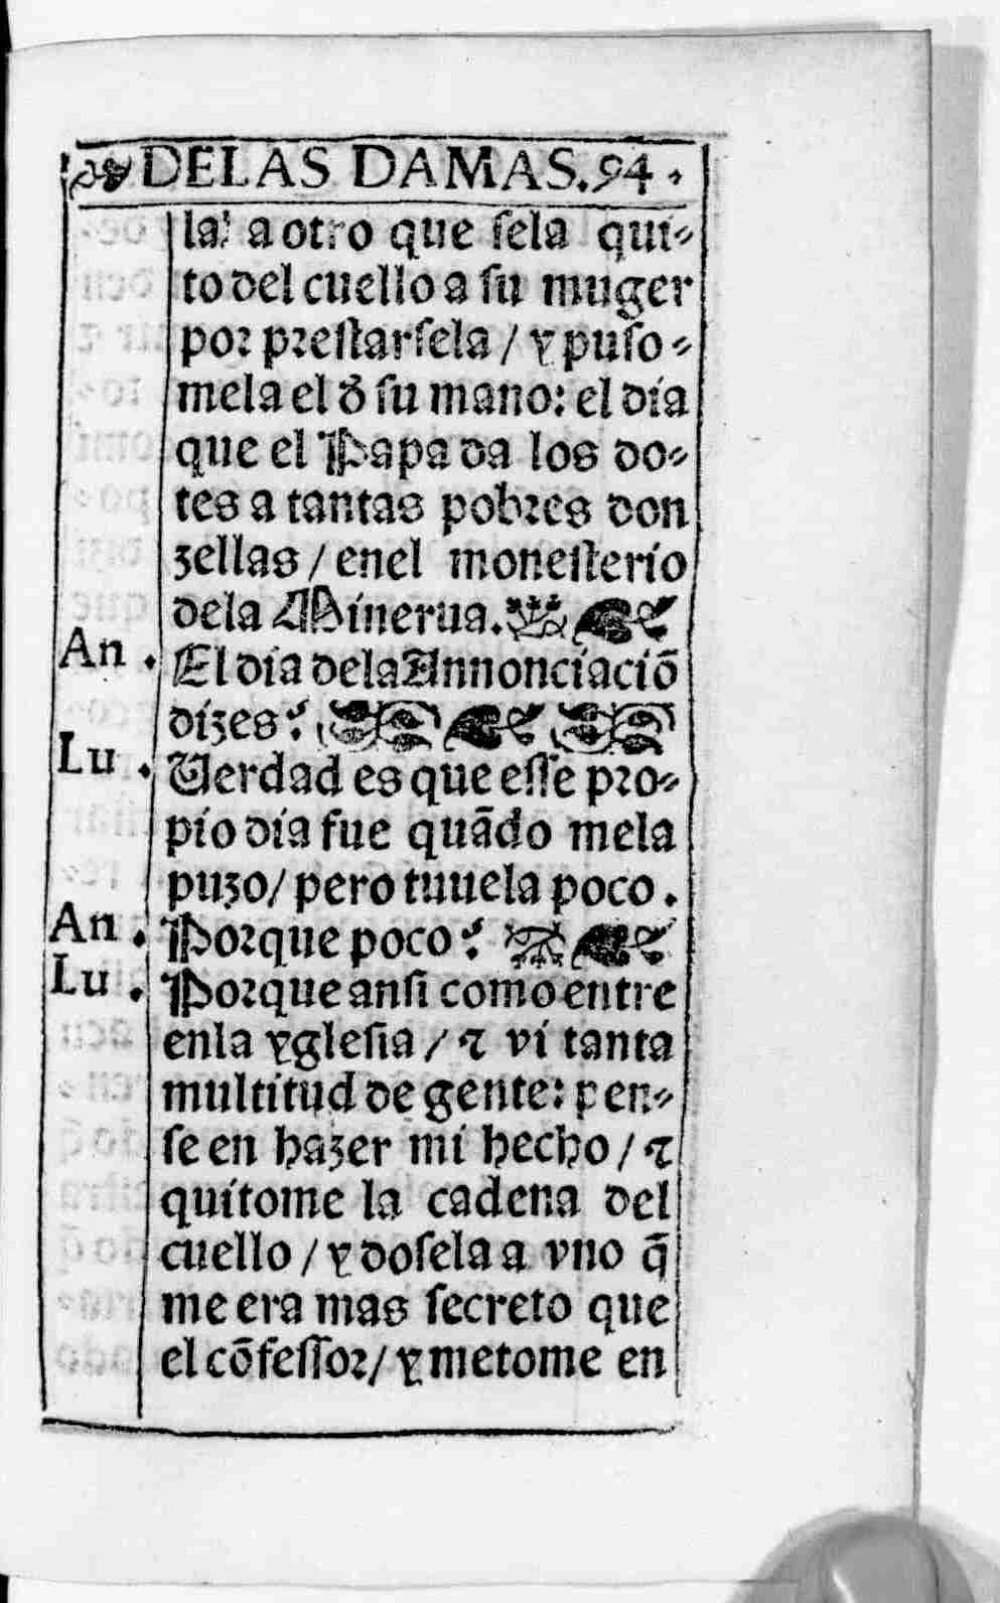 DELAS DAMAS.94.
la: a otro que ſela qui-
to del cuello a ſu muger
por preſtarſela / y puſo-
mela el d̃ ſu mano: el dia
que el Papa da los do-
tes a tantas pobres don
zellas / enel moneſterio
dela Minerua.
An. El dia dela Annonciaciõ
dizes?
Lu. Verdad es que eſſe pro-
pio dia fue quãdo mela
puzo / pero tuuela poco.
An. Porque poco?
Lu. Porque anſi como entre
enla ygleſia / ⁊ vi tanta
multitud de gente: pen-
ſe en hazer mi hecho / ⁊
quitome la cadena del
cuello / y doſela a vno q̃
me era mas ſecreto que
el cõfeſſor / y metome en